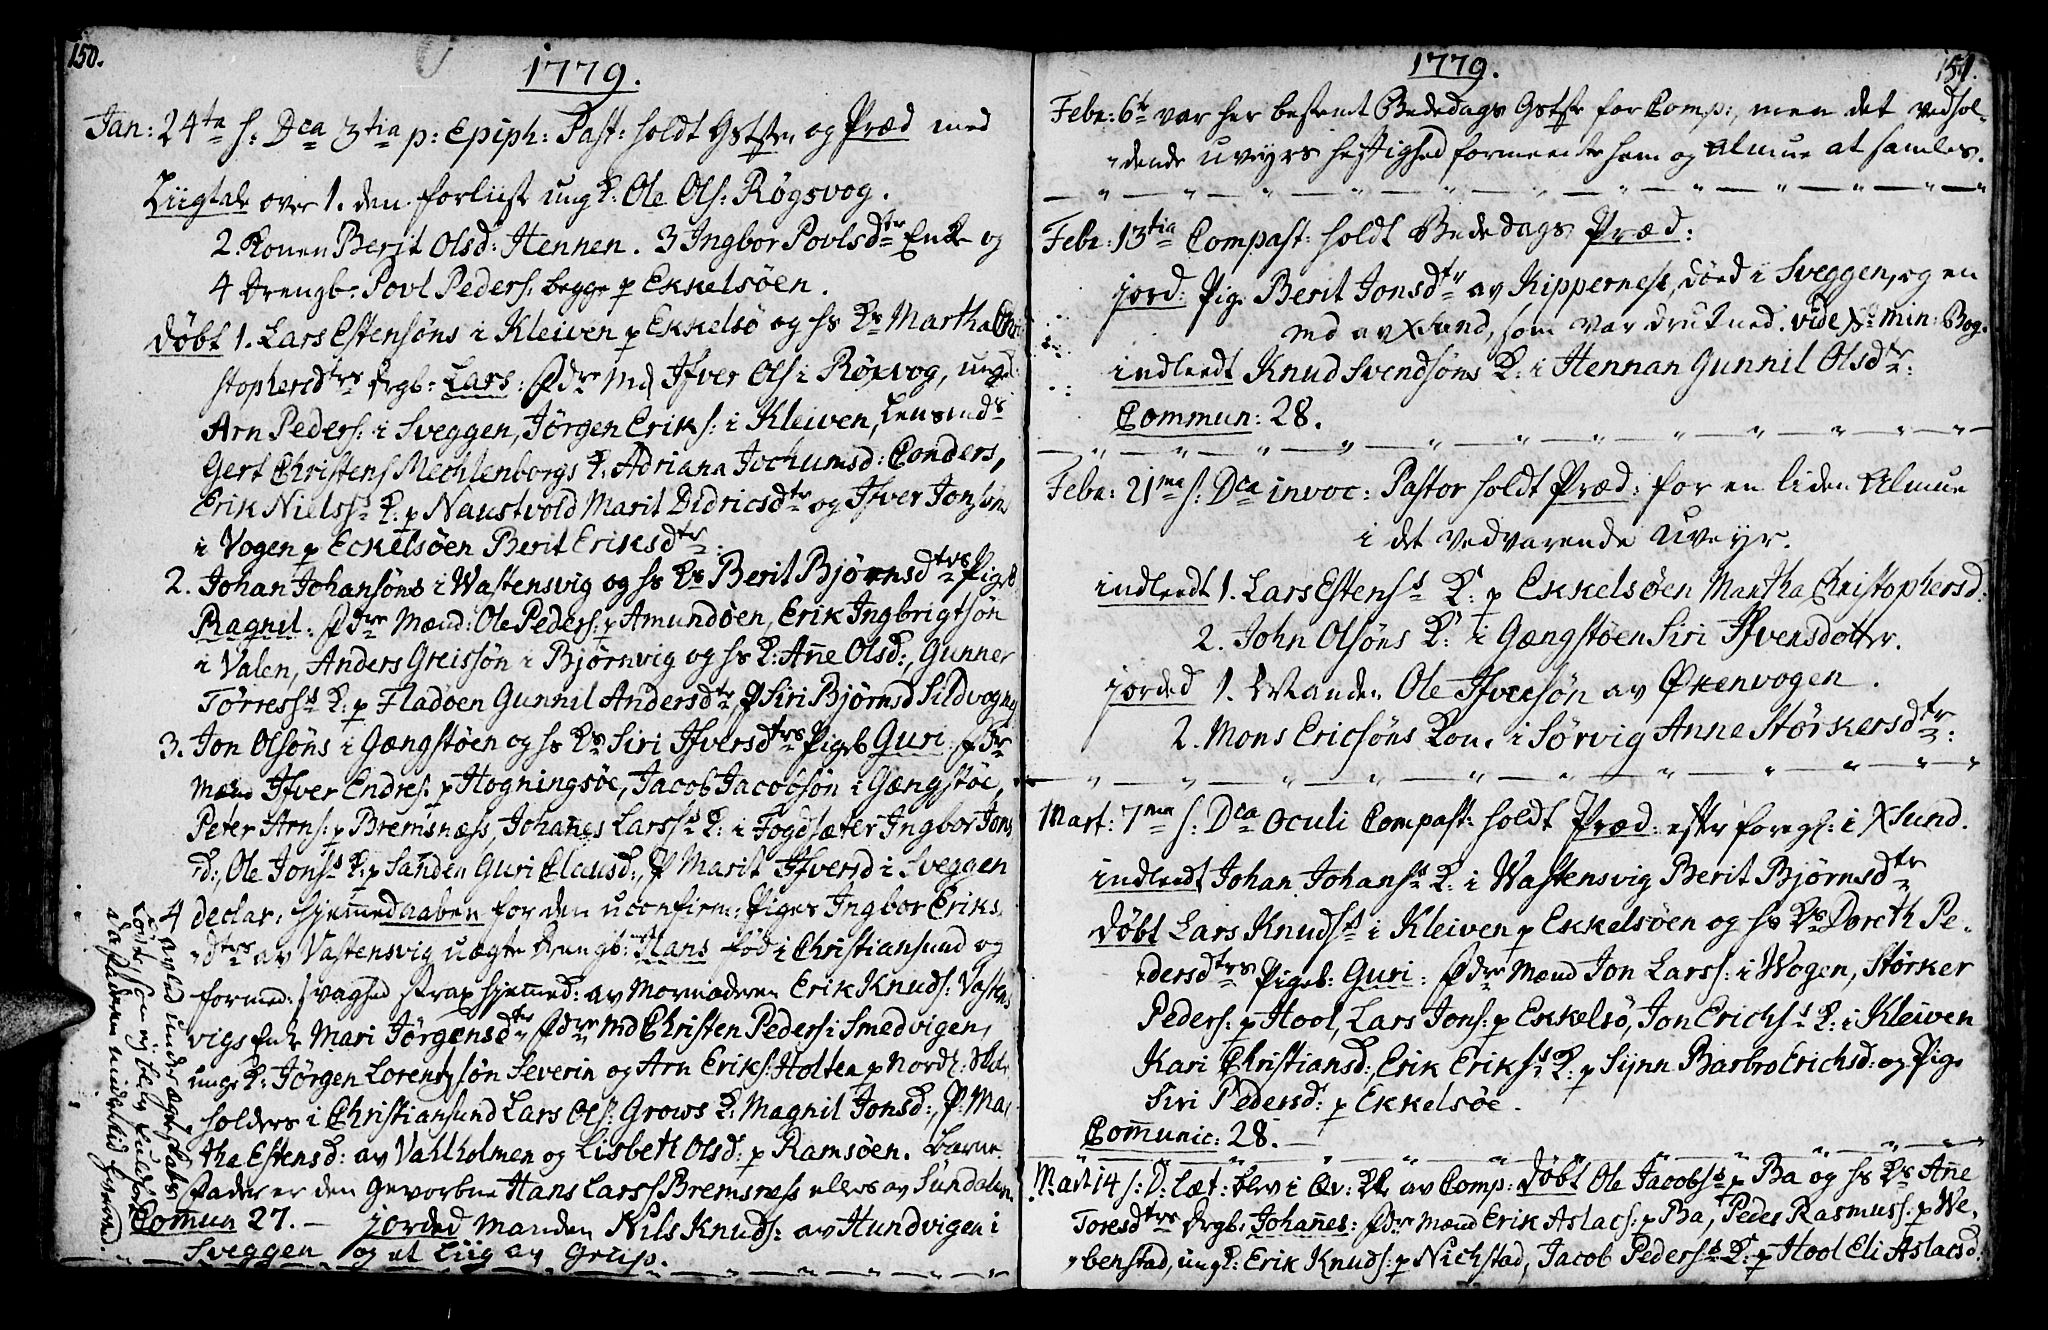 150.
1779.
Jan: 24ta s: Dca 3tia p: Epiph: Past: holdt Gstste og Præd med
Liigtale over 1. den forliist ung K: Ole Ols: Røgsvog.
2. Konen Berit Olsd: Hennen. 3 Ingbor Povlsdtr Enke og
4 Drengb: Povl Peders: begge p Ekkelsøen.
Døbt 1. Lars Estensøns i Kleiven p Ekkelsø og hs Ks Martha Chri
stophersdtrs Drgb: Lars: Fdre Md Ifver Ols i Røxvog, ungk:
Arn Peders: i Sveggen, Jørgen Eriks: i Kleiven, Lensmds
Gert Christens Mechlenborgs K: Adriana Jochumsd: Conders,
Erik Nielss: K: p Naustvold Marit Didricsdtr og Ifver Jonsøns
i Vogen p Eckelsøen Berit Eriksdtr:
2. Johan Johansøns i Wastensvig og hs Ks Berit Bjørnsdtrs Pigeb
Ragnil: Fdre Mænd: Ole Peders: p Amundøen, Erik Ingbrigtsøn
i Valen, Anders Greissøn i Bjørnvig og hs K: Anne Olsd:, Gunner
Tørress: K: p Fladøen Gunnil Andersdtr P Siri Bjørnsd Sildvogen
3. Jon Olsøns i Gængstøen og hs Ks Siri Ifversdtrs Pigeb Guri: Fdr
Mænd Ifver Endres: p Hogningsøe, Jacob Jacobsøn i Gængstøe,
Peter Arns: p Bremsnæss, Johannes Larss: K: i Fogdsæter Ingbor Jons
d:, Ole Jons: K: p Sanden Guri Clausd:, P Marit Ifversd i Sveggen
4 declar: hjemmedaaben for den uconfirm: Piges Ingbor Eriks
dtrs av Vastensvig uægte Drengb: Hans fød i Christiansund og
formed: svaghed strax hjemmed: av Mormoderen Erik Knuds: Vastens
vigs Enke Mari Jørgensdtr Fdre Md Christen Peders: i Smedvigen,
ungk K: Jørgen Lorentzsøn Severin og Arn Eriks: Holten p Nordl:
holders i Christiansund Lars Ols: Grows K: Magnil Jonsd:, P: Mar
tha Estensd: av Vahlholmen og Lisbeth Olsd: p Ramsøen. Barne
Fader er den Gevorbne Hans Larss Bremsnæss ellers av Sundalen
Commun 27. — jorded Manden Nils Knuds: av Hundvigen i
Sveggen og et Liig av Grip.
avled under ægteskabs
løfte
1779.
151.
Febr: 6te var her bestemt Bededags Gstste for Comp:, men det vedhol-
dende uveyrs heftighed formeente ham og Almue at samles.
Febr: 13tia Compast: holdt Bededags Præd:
jord: Pige Berit Jonsdtr av Kippernest, død i Sveggen, og en
Md av Xsund, som var druknet. vide X: min: Bog.
indleedt Knud Svendsøns K: i Hennan Gunnil Olsdtr:
Commun: 28.
Febr: 21ma s: Dca invoc: Pastor holdt Præd: for en liden Almue
i det vedvarende uveyr.
indleedt 1. Lars Estens: K: p Ekkelsøen Martha Christophersd:
2. John Olsøns K: i Gængstøen Siri Ifversdotter.
jorded 1. Manden Ole Ifversøn av Økenvogen.
2. Mons Ericsøns Kone i Sørvig Anne Størkersdtr:
Mart: 7ma s: Dca Oculi Compast: holdt Præd: efter foregl: i Xsund.
indleedt Johan Johans: K: i Wastensvig Berit Bjørnsdtr
Døbt Lars Knuds: i Kleiven p Ekkelsøen og hs Ks Doreth Pe-
dersdtrs Pigeb: Guri: Fdre Mænd Jon Larss: i Wogen, Størker
Peders: p Hool, Lars Jons: p Ekkelsø, Jon Erichs: K: i Kleiven
Kari Christiansd:, Erik Eriks: K: p Synn Barbro Erichsd: og Pige
Siri Pedersd: p Ekkelsøe.
Communic: 28. —
Mart 14 s: D: Læt: blev i Qv: Kk av Comp: Døbt Ole Jacobs: p Ba og hs Ks Anne
Toresdtrs Drgb: Johannes: Fdre Mænd Erik Aslacs: p Ba, Peder Rasmuss: p We-
benstad, ungk: Erik Knuds: p Nichstad, Jacob Peders: K: p Hool Eli Aslacsd: